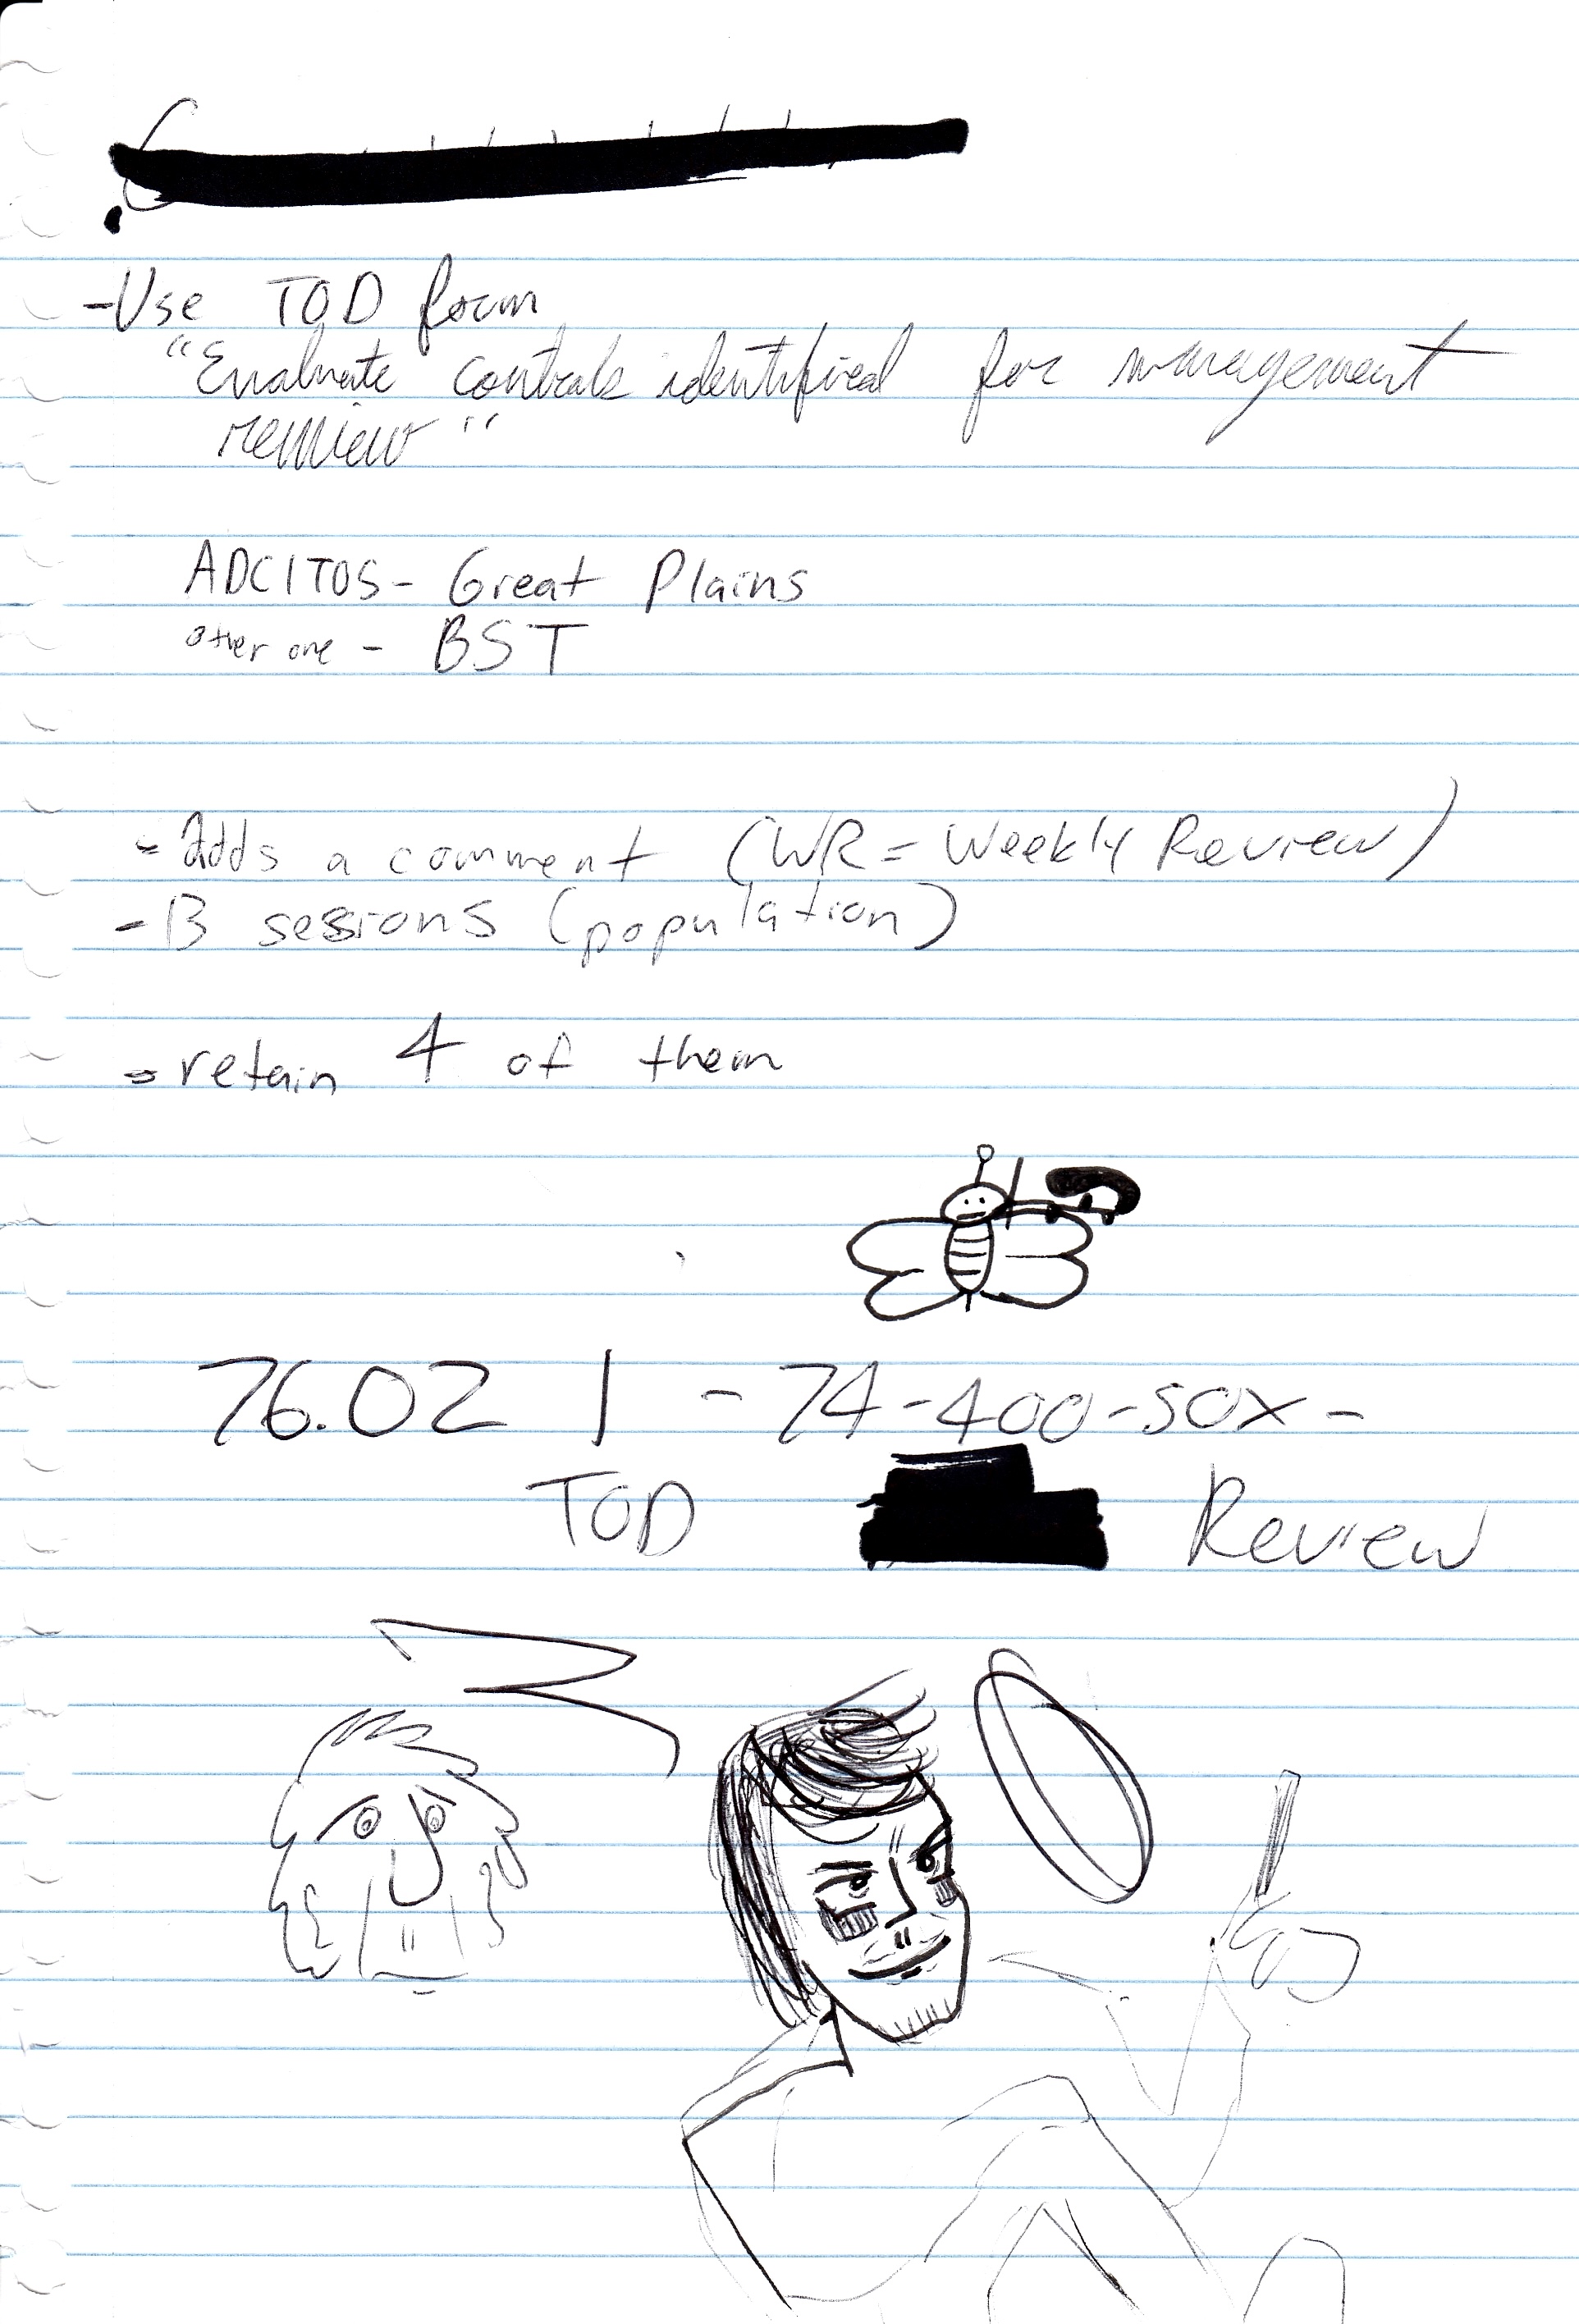 -Use TOD form
"Evaluate controls identified for management
review"
ADCITOS- Great Plains
other one - BST
- adds a comment (WR = Weekly Review)
- 13 sessions (population)
- retain 4 of them
76.02 | - 74-400-SOX-
TOD Review